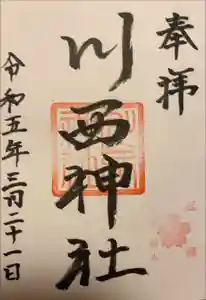 奉拝
川西神社
令和五年三月二十一日